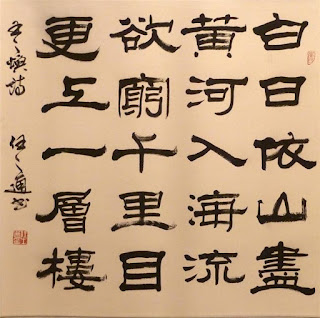 白日依山盡
黄河入海流
欲窮千里目
更上一層樓
詩
任之通书